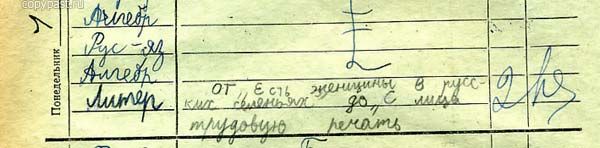 copypast.ru
Понедельник
Алгебр
Рус-яз
Алгебр
Литер
от „Есть женщины в русс-
ких селеньях" до „С лица
трудовую печать
2